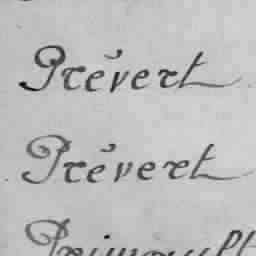 Prévert
Prévert